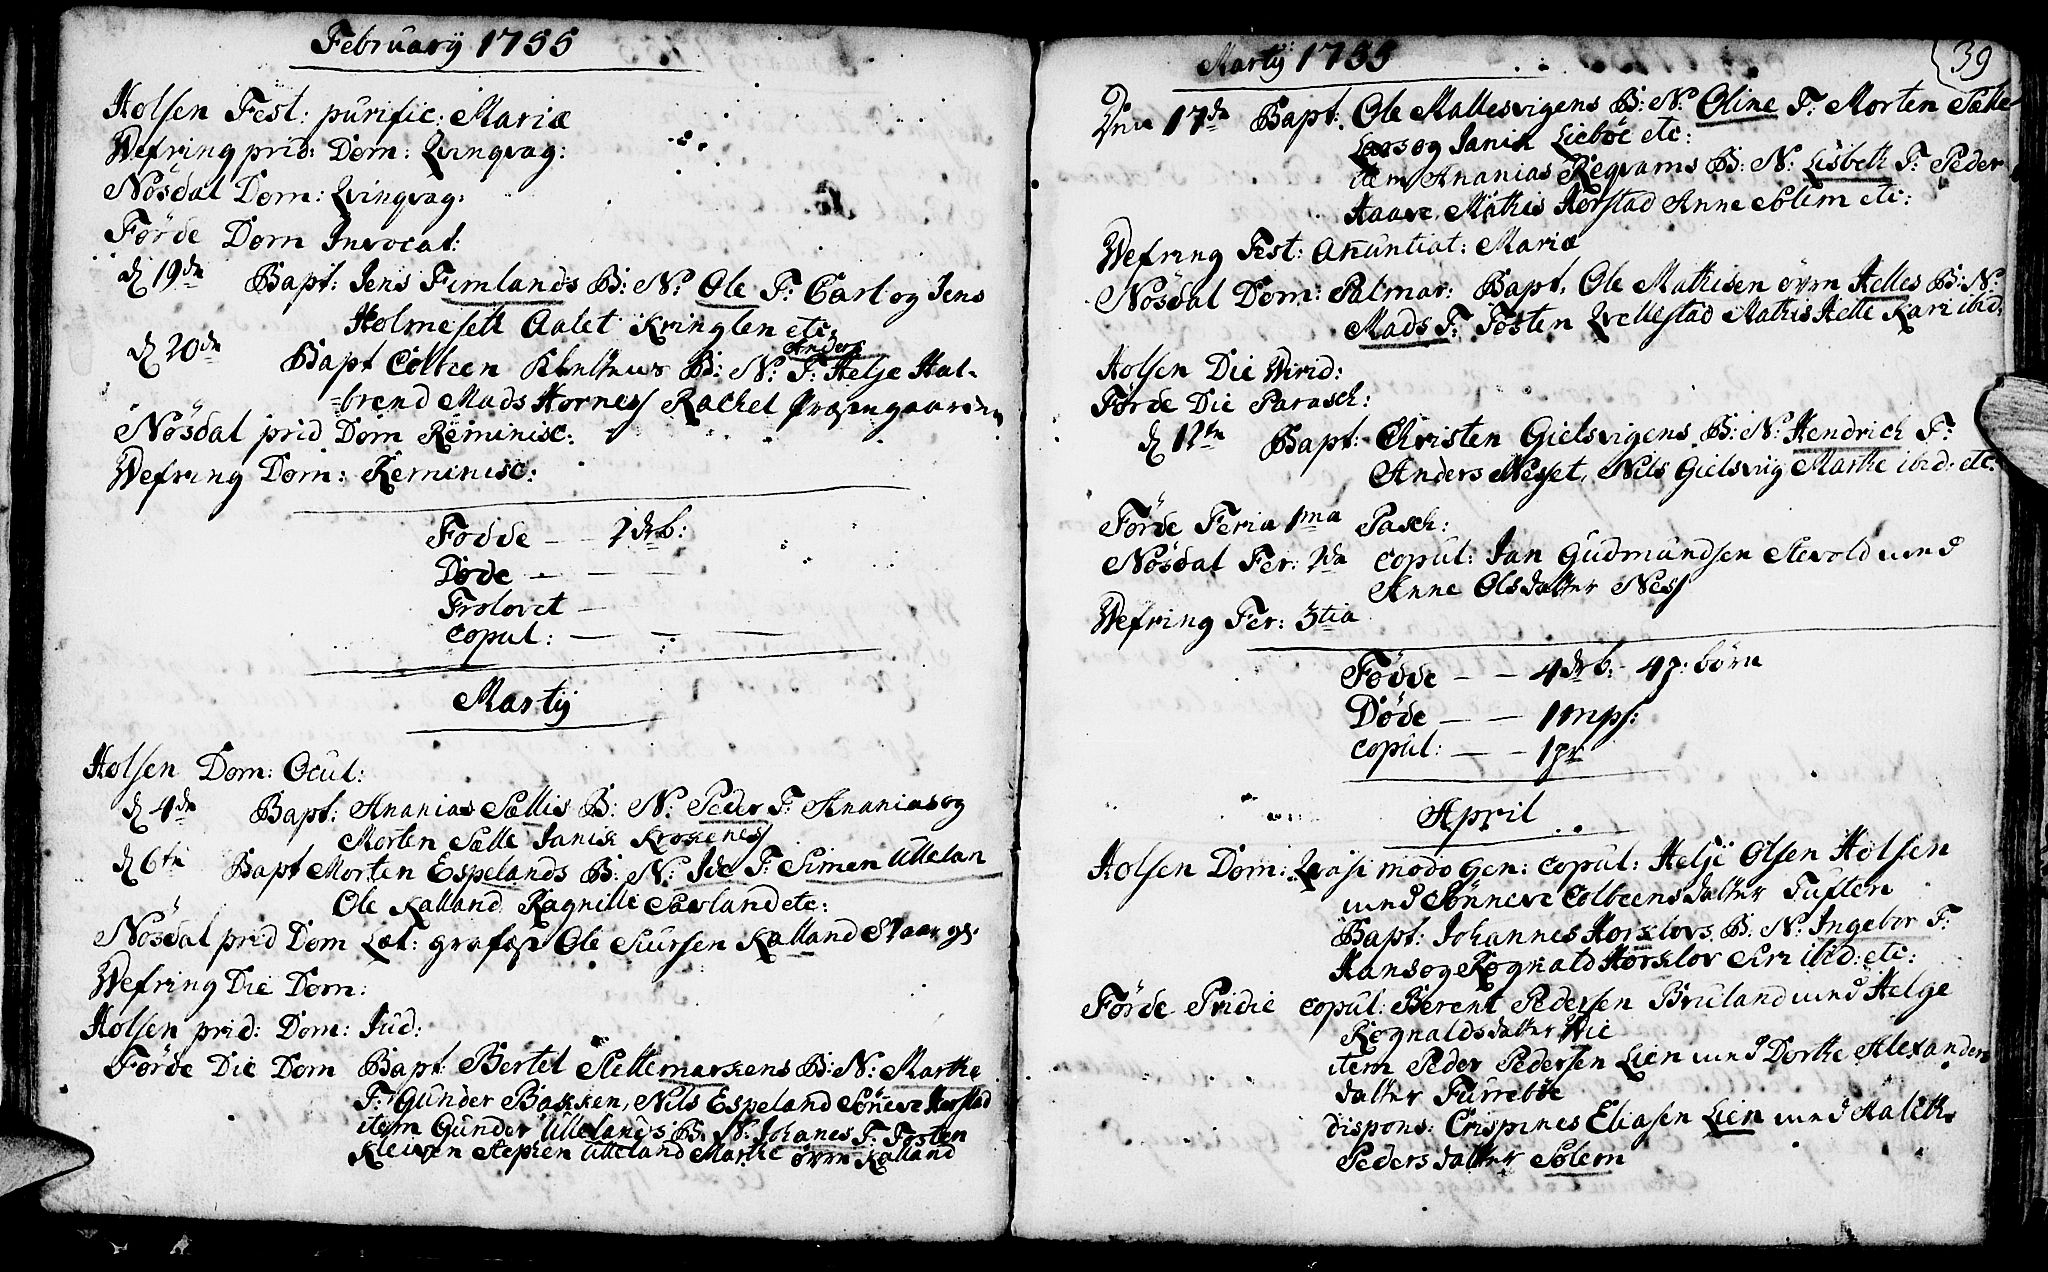 Februarÿ 1755
Holsen Fest: purific: Mariæ
Wefring prid: Dom: Qvinqvag:
Nösdal Dom: Qvinqvag:
Förde Dom Invocat:
d 19de Bapt: Jens Fimlands B: N: Ole F: Carl og Jens
Holmesett Aalet Kringlen etc:
d 20de Bapt Colben B: N: Anders F: Helje Hal-
brend Mads Hornes Rachel
Nösdal prid Dom Reminisc:
Wefring Dom: Reminisc:
Fødde — — 2 drb:
Døde — — —
Trolovet —
Copul: — — —
Martÿ
Holsen Dom: Ocul:
d 4de Bapt: Ananias Sællis B: N: Peder F: Ananias og
Morten Sælle Janik Krokenes
d 6te Bapt Morten Espelands B: N: Ide F: Simen Ulleland
Ole Kalland Ragnille Sarland etc:
Nösdal prid Dom Læt: grafæst Ole Siursen Kalland
Wefring Die Dom:
Holsen prid: Dom: Jud:
Förde Die Dom Bapt: Bertel Slettemarkens B: N: Marthe
F: Gunder Bakken, Nils Espeland Sönneve Horstad
item Gunder Ullelands B: N: Johanes F: Tosten
Kleiven Stephen Ulleland Marthe övre Kalland
Martÿ 1755
39
17de Bapt: Ole Mallesvigens B: N: Oline F: Morten Sælle
Lars og Janik Liebøe etc:
item Ananias Reqvams B: N: Lisbeth F: Peder
Haave, Mathis Horstad Anne Solem etc:
Wefring Fest: Anuntiat: Mariæ
Nösdal Dom: Palmar: Bapt. Ole Mathisen övre Helles B: N:
Mads F: Tosten Qvellestad Mathis Helle Kari ibid:
Holsen Die Virid:
Förde Die Parasch:
d 12te Bapt: Christen Gielsvigens B: N: Hendrich F:
Anders Neset, Nils Gielsvig Marthe ibid: etc:
Förde Feria 1ma Pasch:
Nösdal Fer: 2da Copul: Jan Gudmundsen Stevold med
Anne Olsdatter Nes
Wefring Fer: 3tia
Fødde — — 4 drb: 4 p: børn
Døde — — 1 mps:
Copul: — — 1 pr
April
Holsen Dom: Qvasi modo gen: Copul: Helje Olsen Holsen
med Sönneve Colbeensdatter Tuften
Bapt: Johannes Horsløvs B: N: Ingebor F:
Hans og Rognald Horsløv Siri ibid: etc:
Förde Pridie Copul: Berent Pedersen Bruland med Helge
Rognaldsdatter Vie
item Peder Pedersen Lien med Dorthe Alexanders
datter Furreböe
dispons: Crispines Eliasen Lien med Malith
Pedersdatter Solem